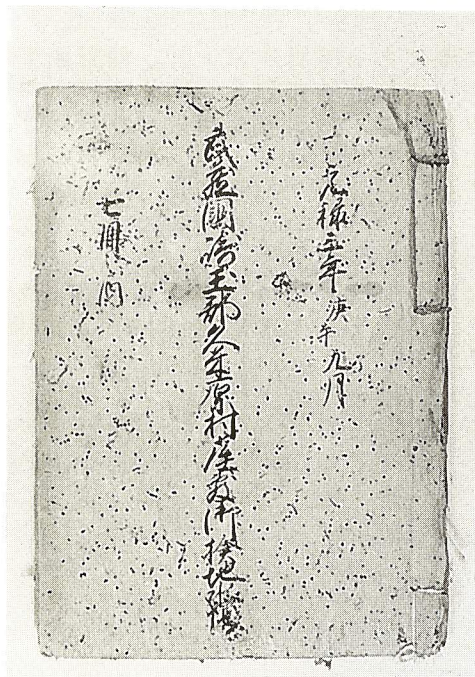 元禄三年庚午九月
武蔵國埼玉郡久米原村屋敷御検地帳
七冊之内